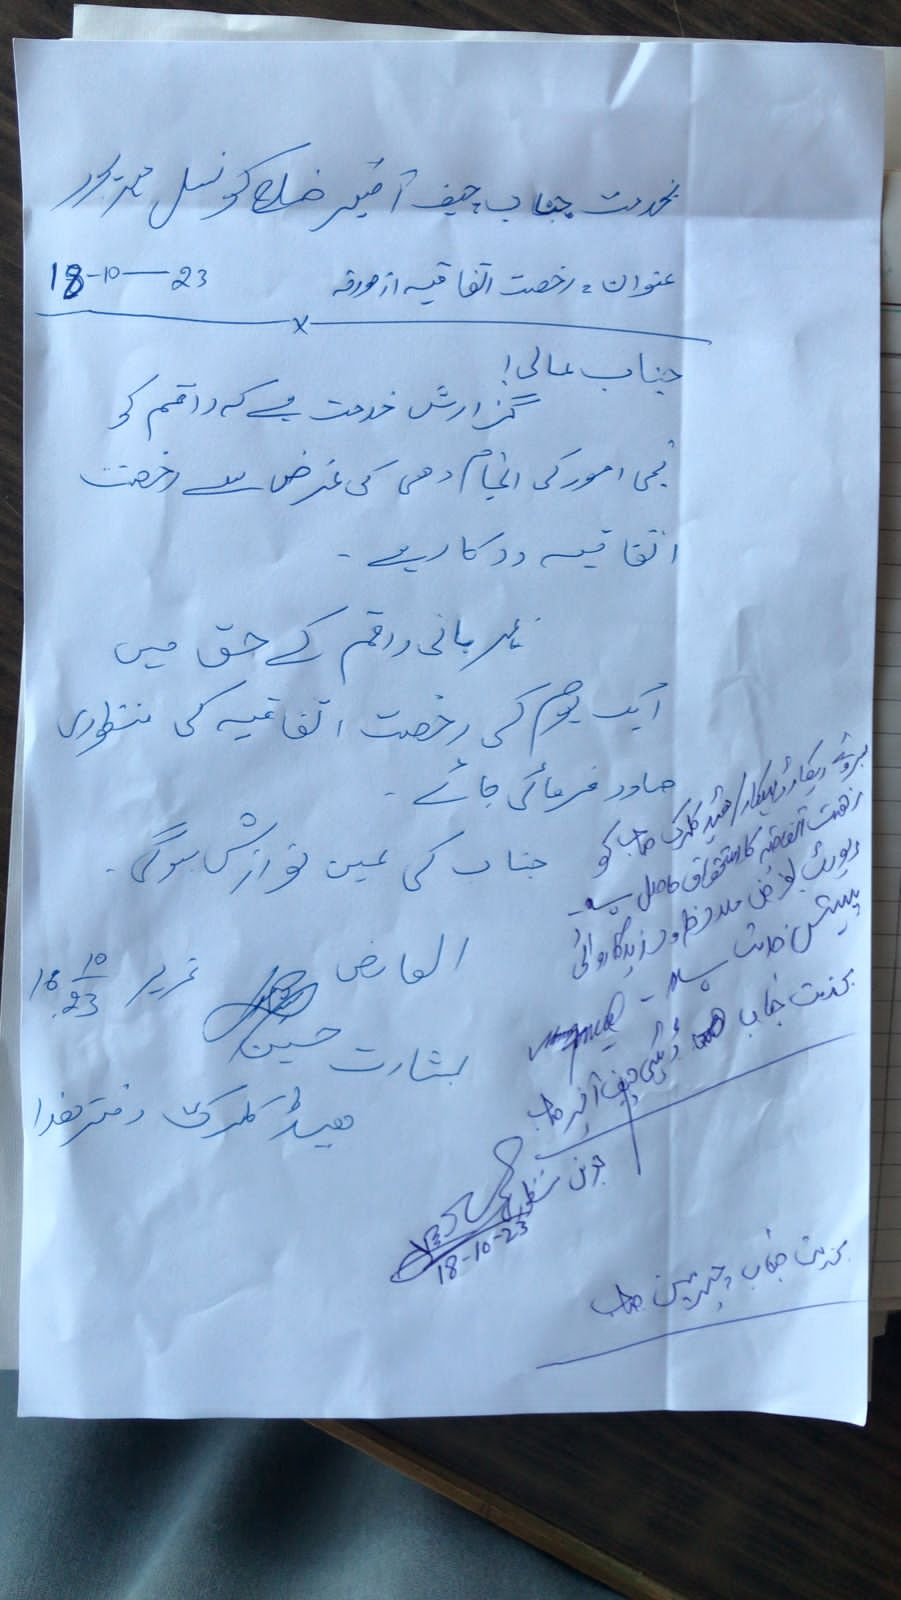 بخدمت جناب چیف آفیسر ضلع کونسل
عنوان: رخصت اتفاقیہ از مورخہ 23-10-18
جناب عالی!
گزارش خدمت ہے کہ راقم کو
نجی امور کی انجام دہی کی غرض سے رخصت
اتفاقیہ درکار ہے۔
راقم کے حق میں
ایک یوم کی رخصت اتفاقیہ کی منظوری
صادر فرمائی جائے۔
جناب کی عین نوازش ہوگی۔
العارض
بشارت حسین
ہیڈ کلرک دفتر ھذا
بروئے ریکارڈ ہیڈ کلرک صاحب کو
رخصت اتفاقیہ کا استحقاق حاصل ہے۔
رپورٹ بغرض ملاحظہ و مزید کاروائی
پیش خدمت ہے۔
بخدمت جناب چیف آفیسر صاحب
18-10-23
بخدمت جناب چیئرمین صاحب